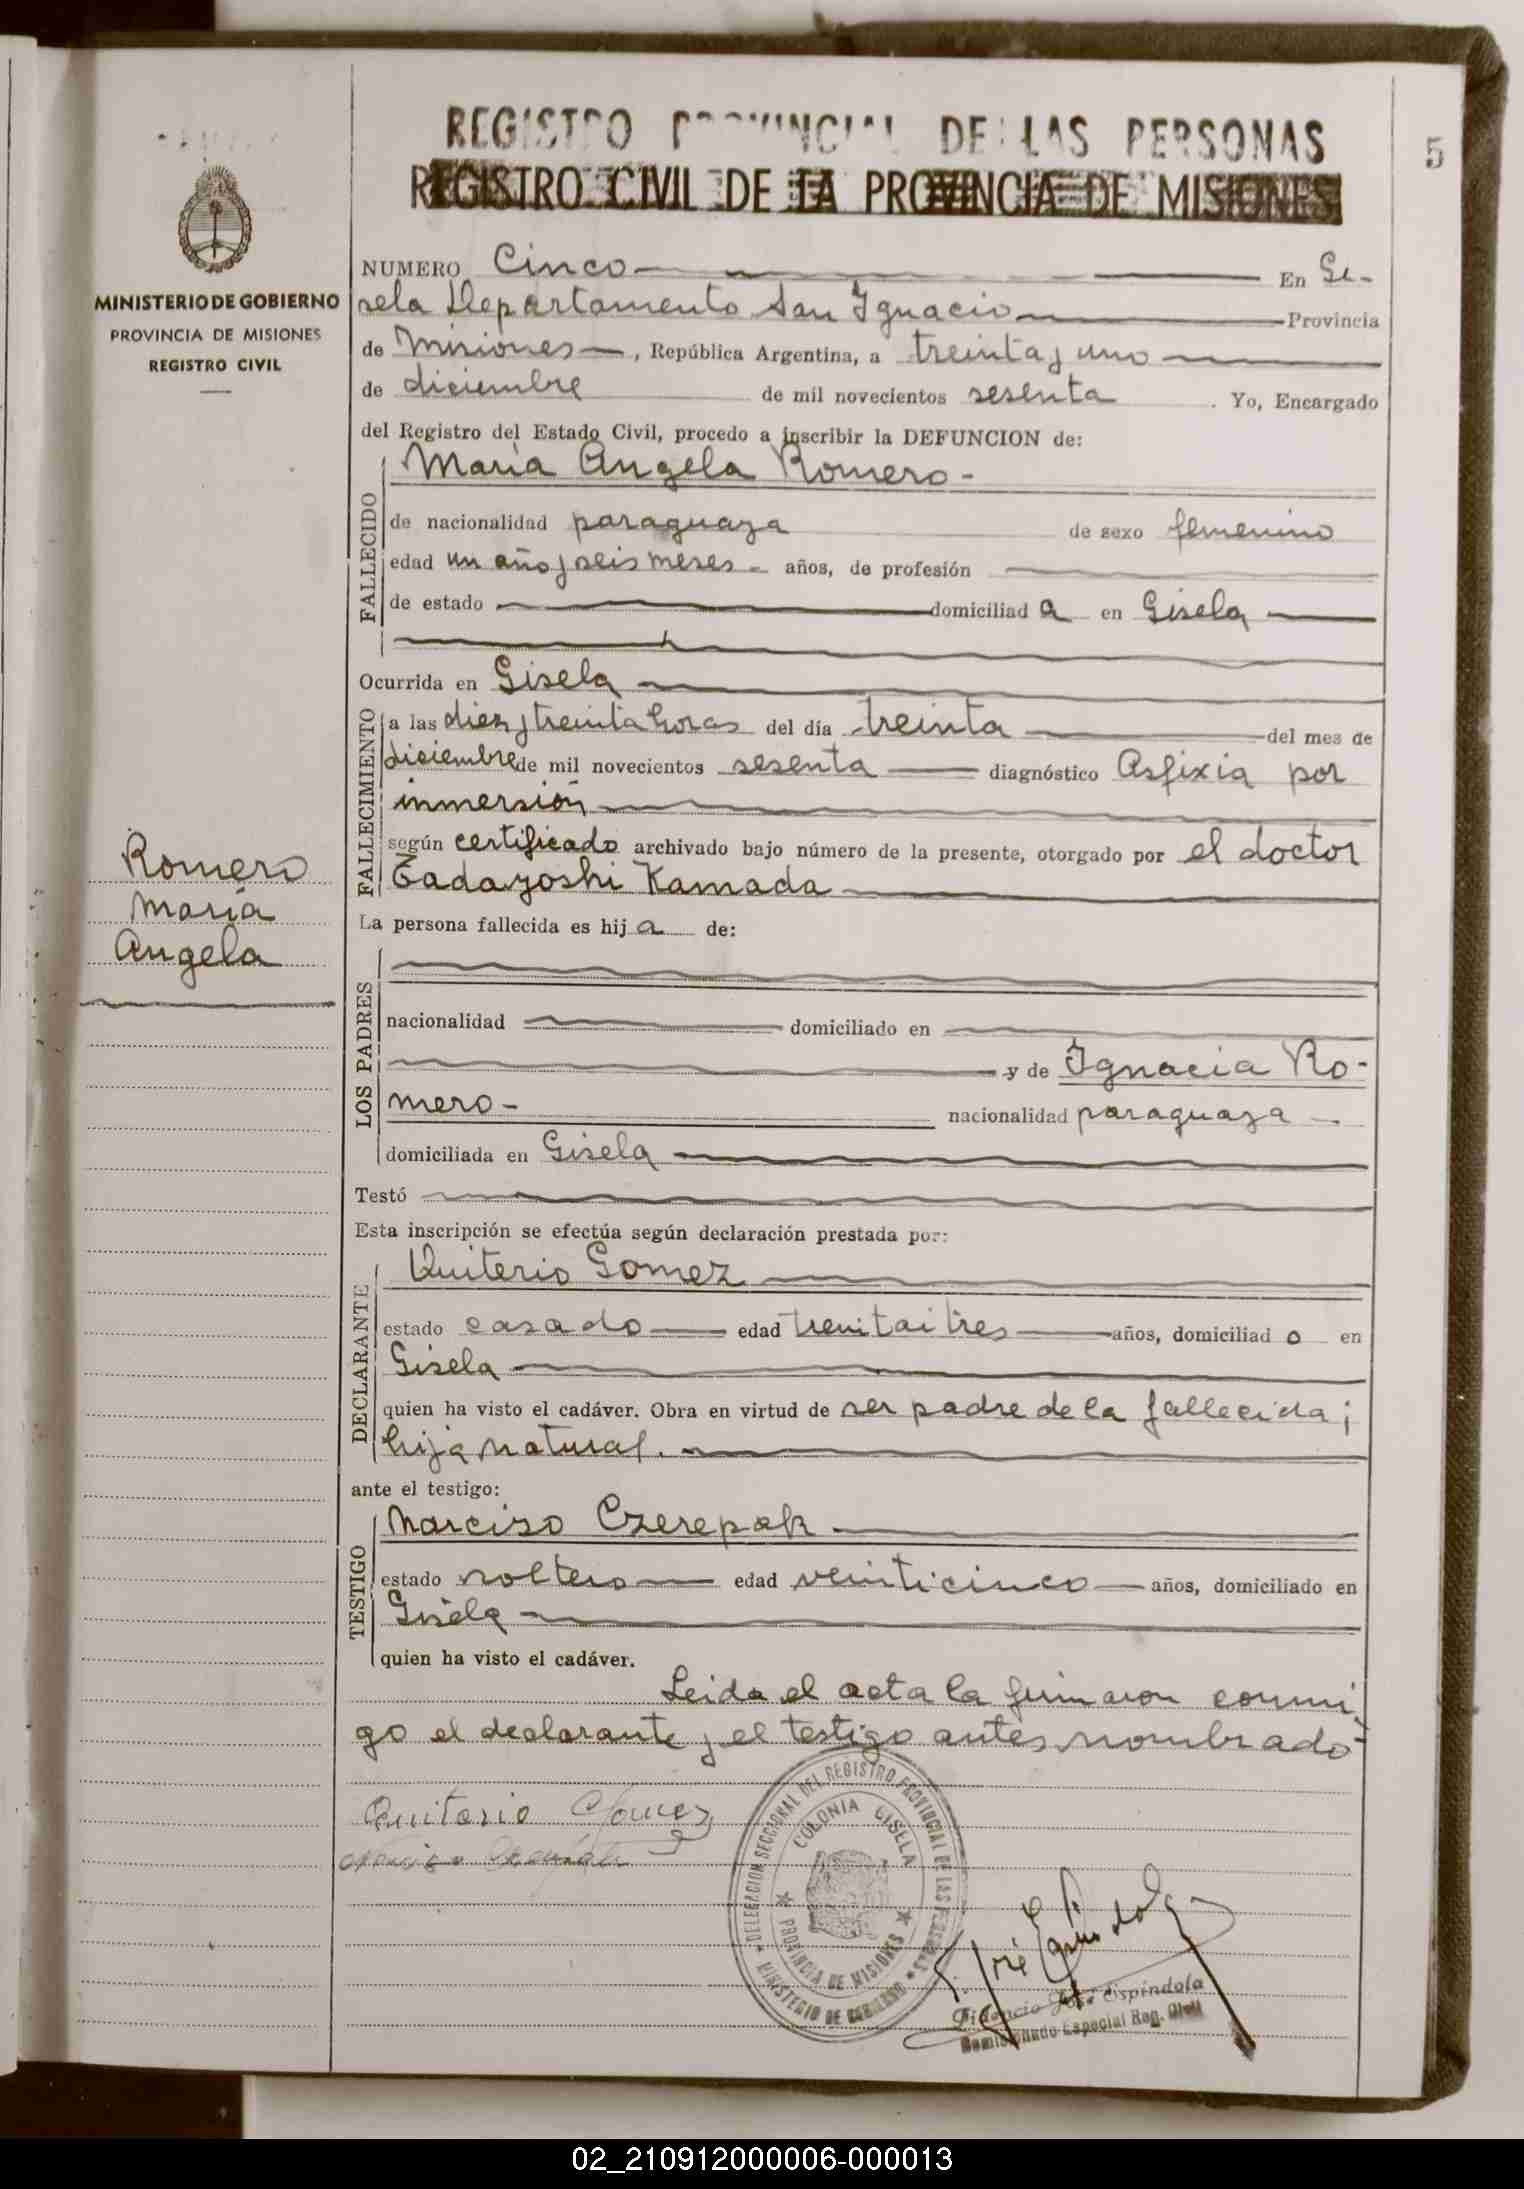 REGISTRO PROVINCIAL DE LAS PERSONAS
5
REGISTRO CIVIL DE LA PROVINCIA DE MISIONES
MINISTERIO DE GOBIERNO
PROVINCIA DE MISIONES
REGISTRO CIVIL
Romero
María
Angela
NUMERO Cinco En Gi-
sela Departamento San Ignacio Provincia
de Misiones, República Argentina, a treinta y uno
de diciembre de mil novecientos sesenta. Yo, Encargado
del Registro del Estado Civil, procedo a inscribir la DEFUNCION de:
FALLECIDO
María Angela Romero-
de nacionalidad paraguaya de sexo femenino
edad un año y seis meses- años, de profesión
de estado domiciliad a en Gisela
Ocurrida en Gisela
FALLECIMIENTO
a las diez y treinta horas del día treinta del mes de
diciembre de mil novecientos sesenta diagnóstico Asfixia por
inmersión
según certificado archivado bajo número de la presente, otorgado por el doctor
Tadayoshi Kamada
La persona fallecida es hij a de:
LOS PADRES
nacionalidad domiciliado en
y de Ignacia Ro-
mero- nacionalidad paraguaya-.
domiciliada en Gisela
Testó
Esta inscripción se efectúa según declaración prestada por:
DECLARANTE
Quiterio Gomez
estado casado edad treintaitres años, domiciliad o en
Gisela
quien ha visto el cadáver. Obra en virtud de ser padre de la fallecida;
hija natural.
ante el testigo:
TESTIGO
Narciso Czerepak
estado soltero edad veinticinco años, domiciliado en
Gisela
quien ha visto el cadáver.
Leida el acta la firmaron conmi-
go el declarante y el testigo antes nombrado-
Quiterio Gomez
DELEGACION SECCIONAL DEL REGISTRO PROVINCIAL DE LAS PERSONAS
COLONIA GISELA
PROVINCIA DE MISIONES
MINISTERIO DE GOBIERNO
F. José Espindola
Fidencio José Espíndola
Comisionado Especial Reg. Civil
02_210912000006-000013